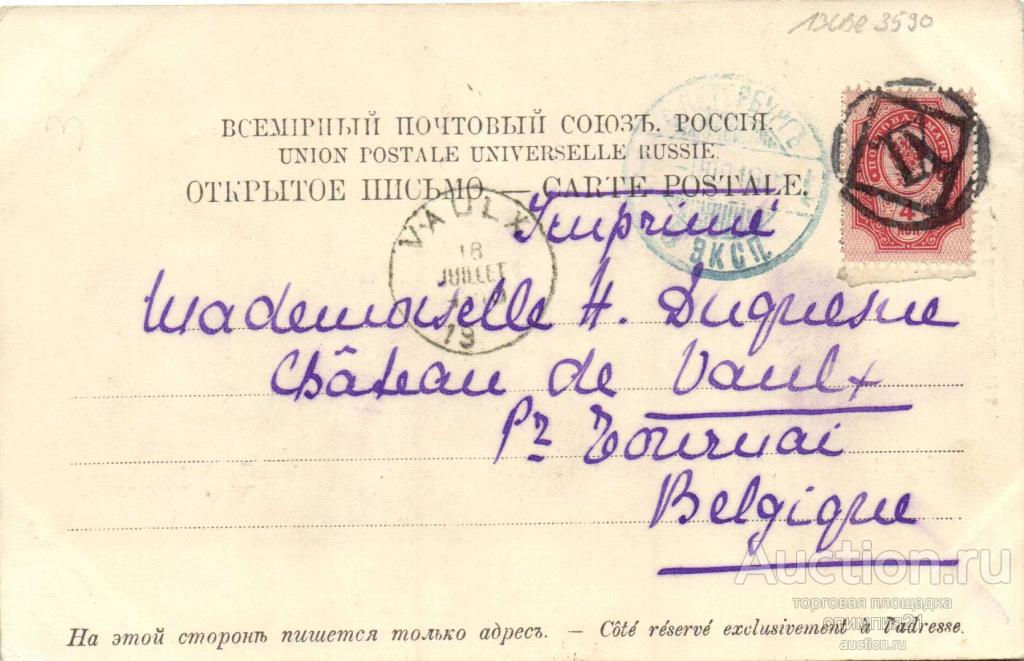 ВСЕМІРНЫЙ ПОЧТОВЫЙ СОЮЗЪ. РОССІЯ.
UNION POSTALE UNIVERSELLE RUSSIE.
ОТКРЫТОЕ ПИСЬМО — CARTE POSTALE.
Imprimé
ЭКСП.
IX
ПОЧТОВАЯ МАРКА
4
VAULX
18
JUILLET
19
Mademoiselle H. Duquesne
Château de Vaulx
Pr Tournai
Belgique
На этой сторонѣ пишется только адресъ. — Côté réservé exclusivement à l'adresse.
Auction.ru
торговая площадка
олимпия21
auction.ru